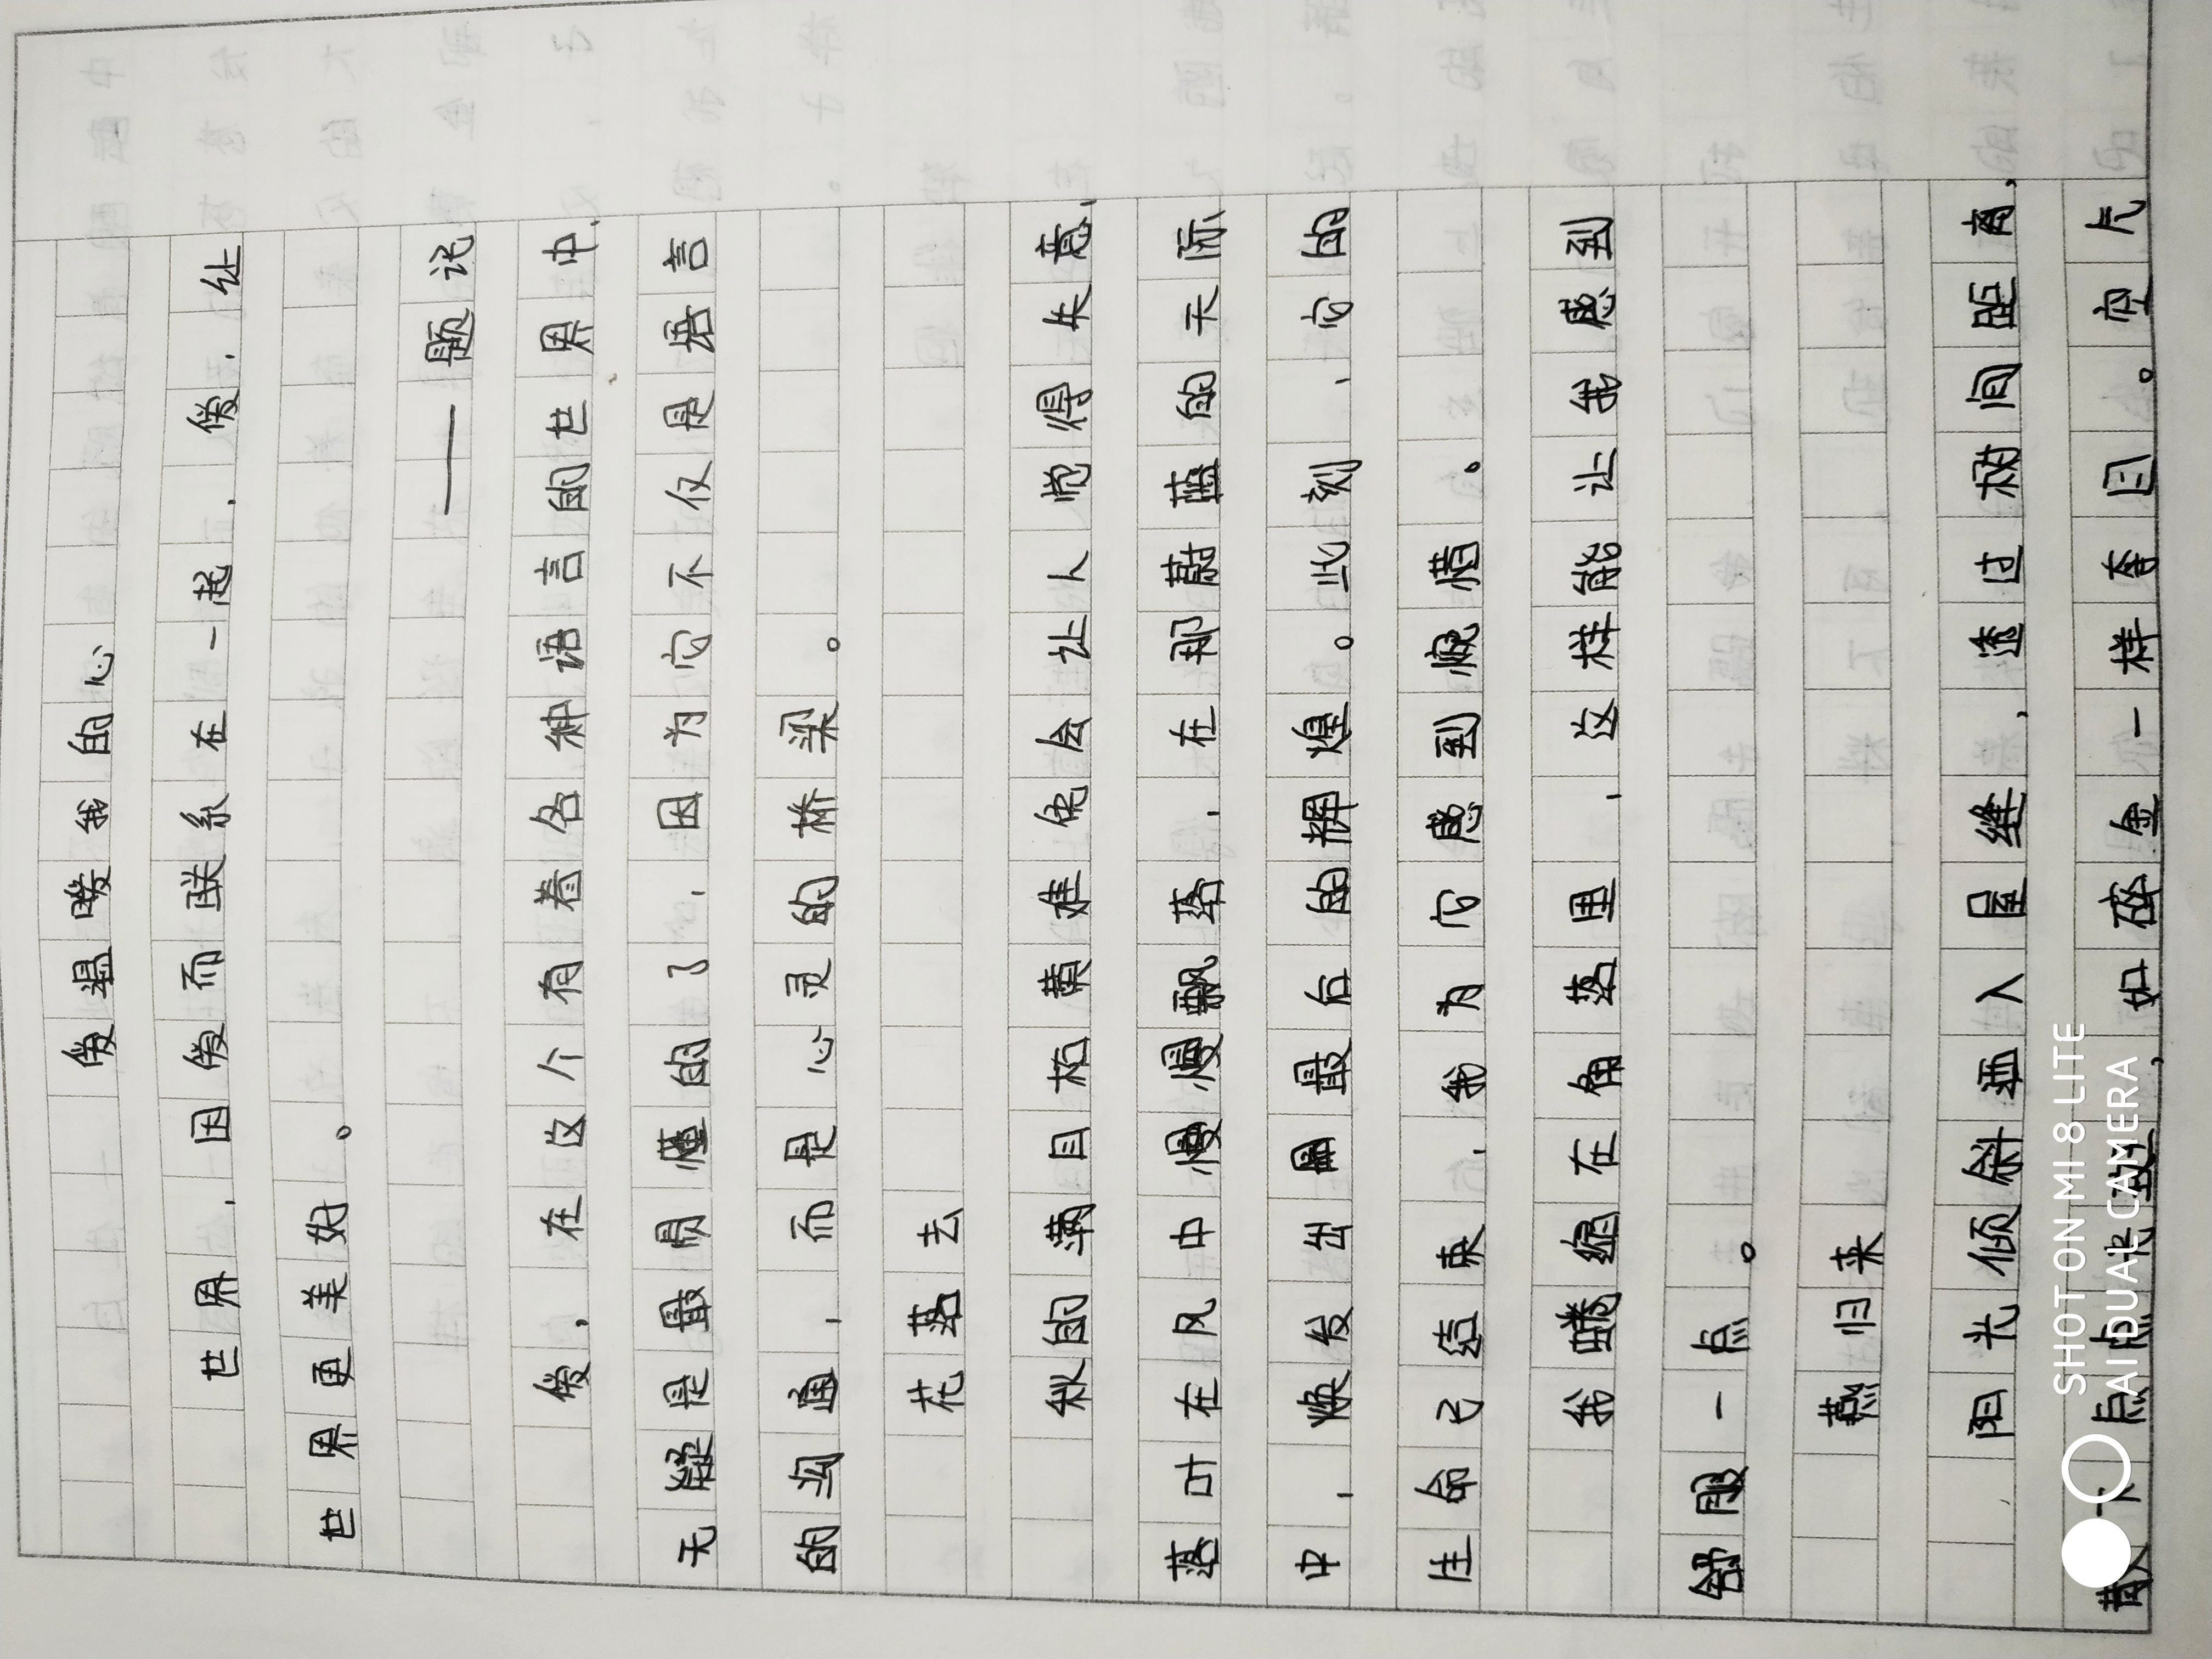 爱温暖我的心
世界，因爱而联系在一起，爱，让
世界更美好。
——题记
爱，在这个有着各种语言的世界中，
无疑是最最贯懂的了，因为它不仅是语言
的沟通，而是心灵的桥梁。
花落去
秋的满目枯黄难免会让人觉得失意，
落叶在风中慢慢飘落，在那蔚蓝的天际
中，焕发出最后的辉煌。此刻，它的
生命已结束，我为它感到惋惜。
我蜷缩在角落里，这样能让我感到
舒服一点。
燕归来
阳光倾斜洒入屋缝，透过树间距离，
点点光斑，如碎金一样夺目。空气
SHOT ON MI 8 LITE
AI DUAL CAMERA